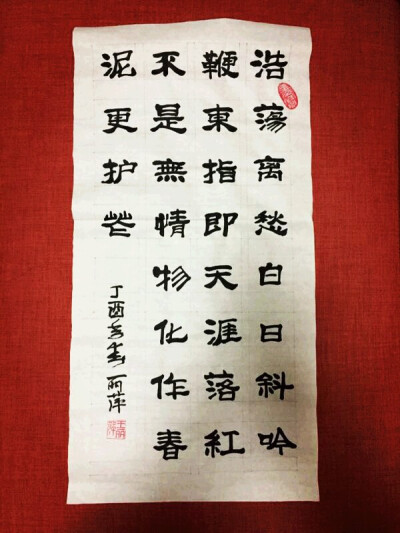 浩蕩离愁白日斜吟
鞭東指即天涯落紅
不是無情物化作春
泥更护花
丁酉春丽萍